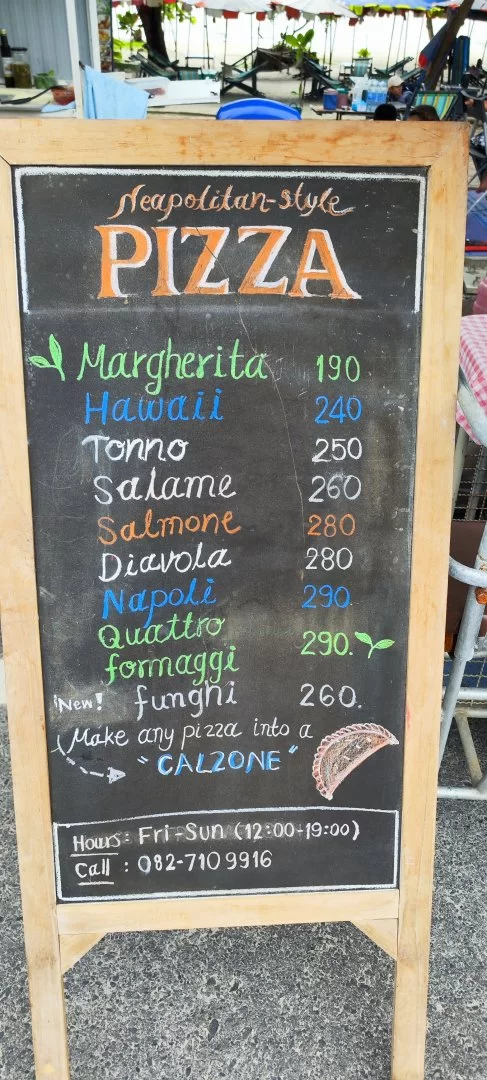 Neapolitan-style
PIZZA
Margherita 190
Hawaii 240
Tonno 250
Salame 260
Salmone 280
Diavola 280
Napoli 290.
Quattro
formaggi 290.
New! funghi 260.
Make any pizza into a
"CALZONE"
Hours: Fri-Sun (12:00-19:00)
Call : 082-710 9916